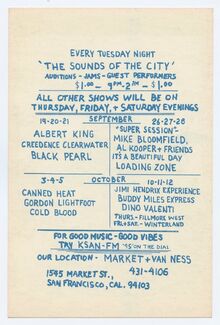 EVERY TUESDAY NIGHT
'THE SOUNDS OF THE CITY'
AUDITIONS - JAMS - GUEST PERFORMERS
$1.00 - 9PM-2AM - $1.00
ALL OTHER SHOWS WILL BE ON
THURSDAY, FRIDAY, + SATURDAY EVENINGS
SEPTEMBER
19-20-21
ALBERT KING
CREEDENCE CLEARWATER
BLACK PEARL
26-27-28
"SUPER SESSION"-
MIKE BLOOMFIELD,
AL KOOPER + FRIENDS
IT'S A BEAUTIFUL DAY
LOADING ZONE
OCTOBER
3-4-5
CANNED HEAT
GORDON LIGHTFOOT
COLD BLOOD
10-11-12
JIMI HENDRIX EXPERIENCE
BUDDY MILES EXPRESS
DINO VALENTI
THURS- FILLMORE WEST
FRI+SAT.- WINTERLAND
FOR GOOD MUSIC - GOOD VIBES
TRY KSAN-FM '95 ON THE DIAL
OUR LOCATION - MARKET + VAN NESS
1545 MARKET ST., 431-4106
SAN FRANCISCO, CAL. 94103